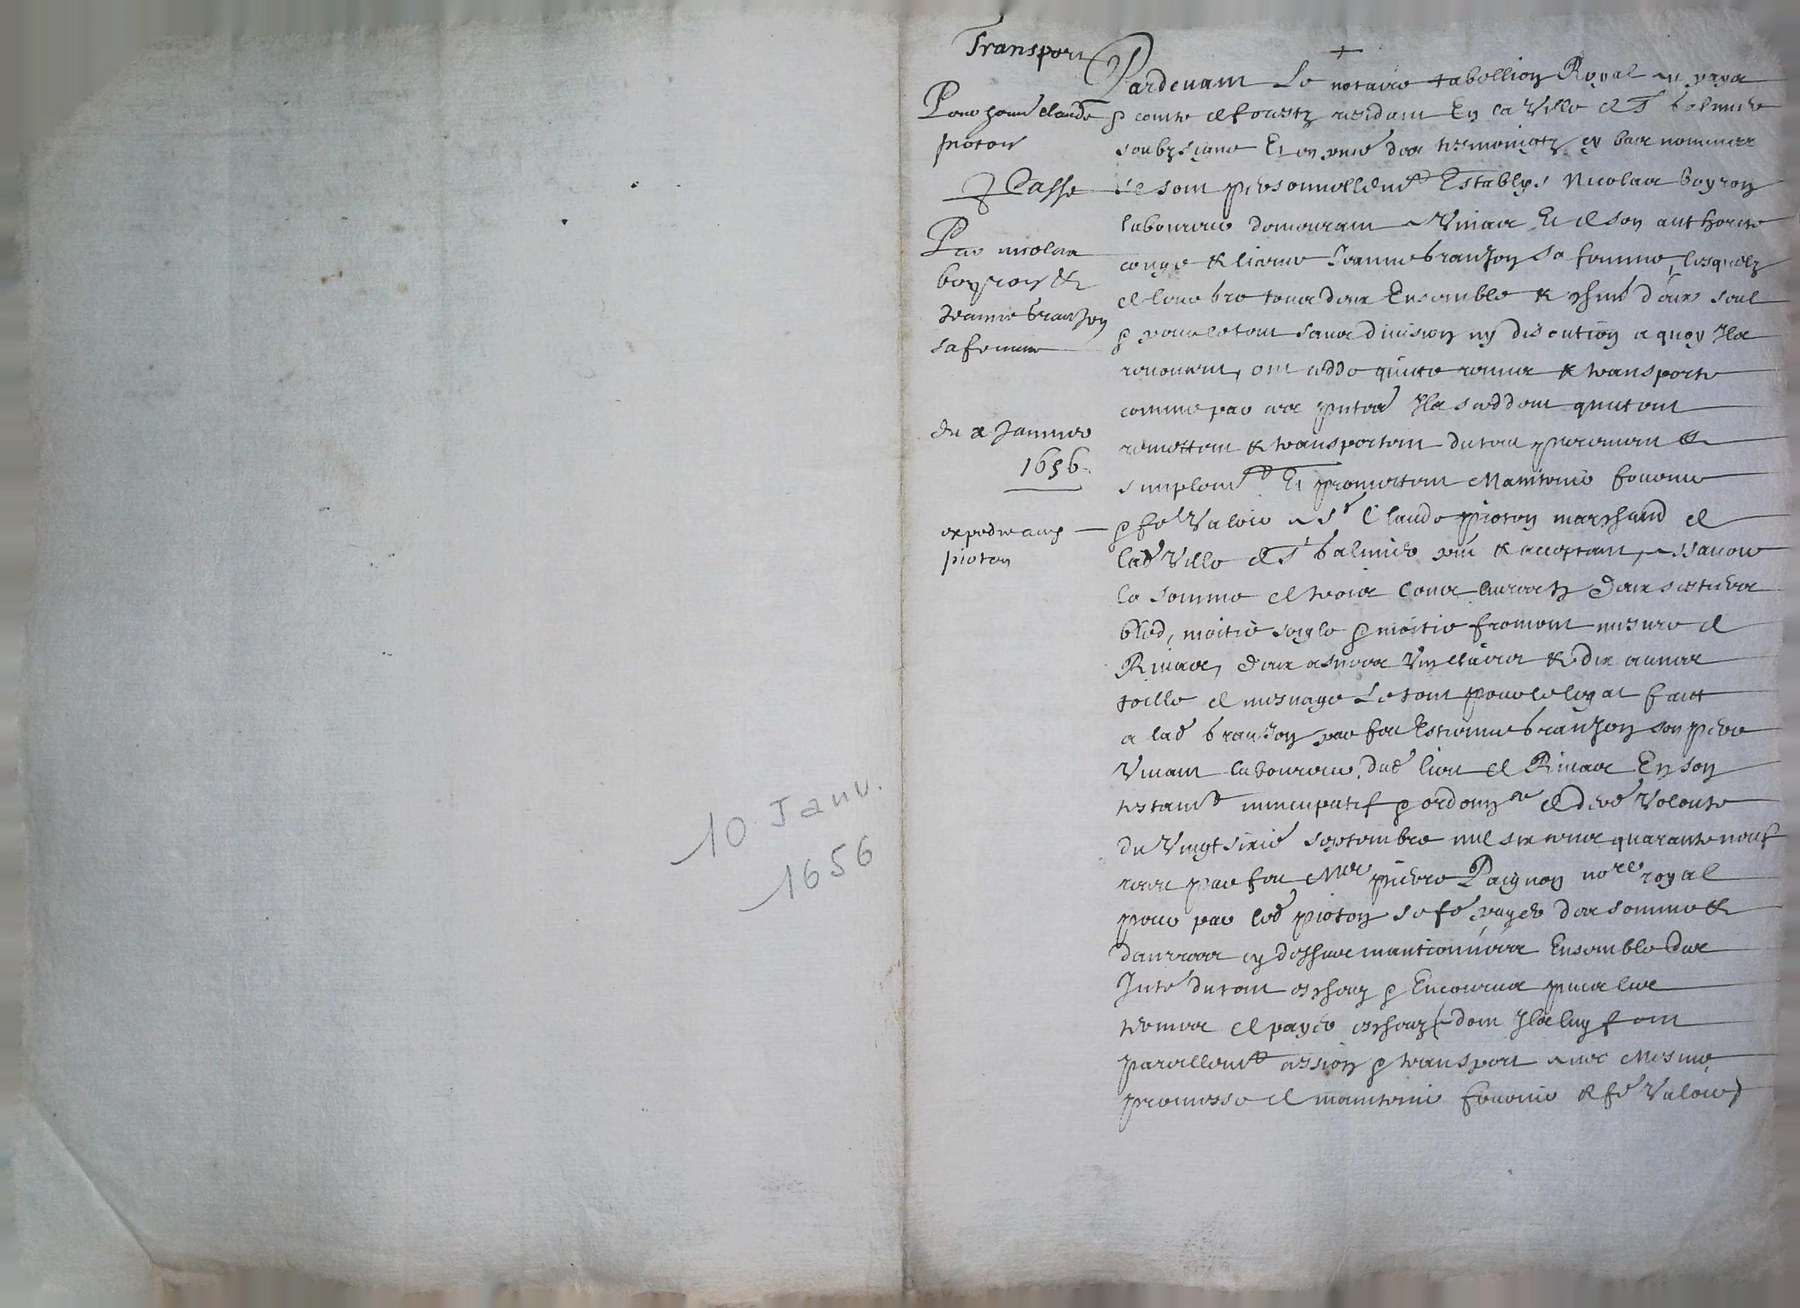 10 Janv.
1656
Transport
Pour honn claude
pioton
Passe
Par nicolas
boyron &
Jeanne branjon
sa femme
du x Janvier
1656
expedie aud
pioton
Pardevant Le notaire tabellion Royal au pays
& comte de forestz residant En la Ville de St balmier
soubzsigne Et en pnce des tesmoingtz cy bas nommes
se sont personnellemt Establys Nicolas boyron
laboureur demeurant a Et de son authorite
conge & licence Jeanne branjon sa femme, lesquelz
de leur bre tous deux Ensemble & deux seul
& pour le tout sans division ny discution a quoy Ilz
renoncent, ont cedde quitte remis & transporte
comme par ces pntes Ilz ceddent quittent
remettent & transportent du tout purement &
simplemt Et promettent Maintenir fournir
& fe Valoir a Sr Claude pioton marchand de
lad Ville de St balmier pnt & acceptant, assavoir
la somme de trois cens livres deux sestiers
bled, moitie seigle & moitie froment mesure de
Rivas, deux asnees Vin & dix aunes
toille de mesnage Le tout pour le legat faict
a lad branjon par feu Estienne branjon son pere
Vivant laboureur dud lieu de Rivas En son
testamt nuncupatif & ordonnce de dere Volonte
du Vingt sixie septembre mil six cens quarante neuf
receu par feu Mre pierre Paignon nore royal
pour par led pioton se fe payer des sommes &
danrees cy dessus mantionnees Ensemble des
Intes du tout escheuz & Encourus puis les
termes de payer escheuz (dont Ilz luy font
pareillemt cession & transport avec Mesme
promesse de maintenir fournir & fe Valoir)